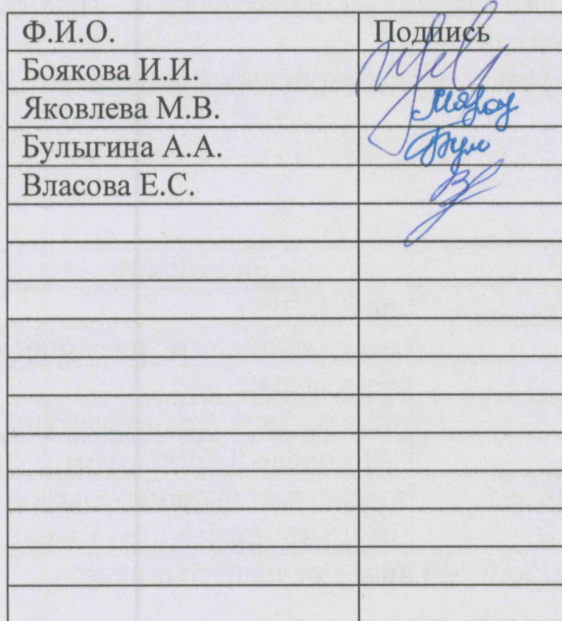 Ф.И.О. Подпись
Боякова И.И.
Яковлева М.В.
Булыгина А.А.
Власова Е.С.